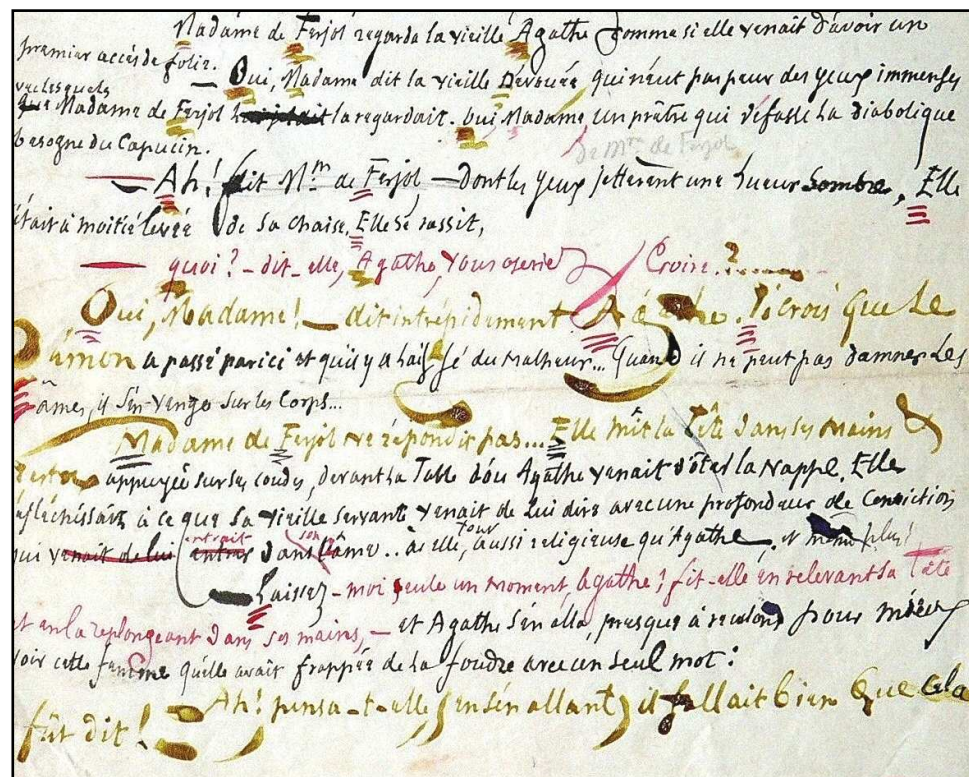 Madame de Ferjol regarda la vieille Agathe comme si elle venait d'avoir un
premier accès de folie.
— Oui, Madame dit la vieille Dévouée qui n'eut pas peur des yeux immenses
avec lesquels
que Madame de Ferjol la regardait. Oui Madame un prêtre qui défasse la diabolique
besogne du Capucin.
de Mme de Ferjol
— Ah! fit Mme de Ferjol — dont les yeux jetterent une lueur sombre. Elle
était à moitié levée de sa chaise, Elle se rassit,
— quoi? — dit-elle, Agathe, vous oseriez Croire?......
Oui, Madame! — dit intrépidement Agathe. J'crois que Le
Démon a passé par ici et qu'il y a laissé du Malheur... Quand il ne peut pas damner Les
âmes, il s'en venge sur les Corps...
Madame de Ferjol ne répondit pas... Elle mît la Tête dans ses mains &
resta appuyée sur ses coudes, devant la Table d'où Agathe venait d'ôter la nappe. Elle
réfléchissait à ce que sa vieille servante venait de Lui dire avec une profondeur de Conviction
entrait son
qui venait de lui entrer dans l'âme.. à elle, tout aussi religieuse qu'Agathe, et même plus!
— Laissez-moi seule un moment, Agathe! fit-elle en relevant sa Tête
et en la replongeant dans ses mains, — et Agathe s'en alla, presque à reculons pour mieux
voir cette femme qu'elle avait frappée de la foudre avec un seul mot:
— Ah! pensa-t-elle (en s'en allant) il fallait bien que cela
fût dit!